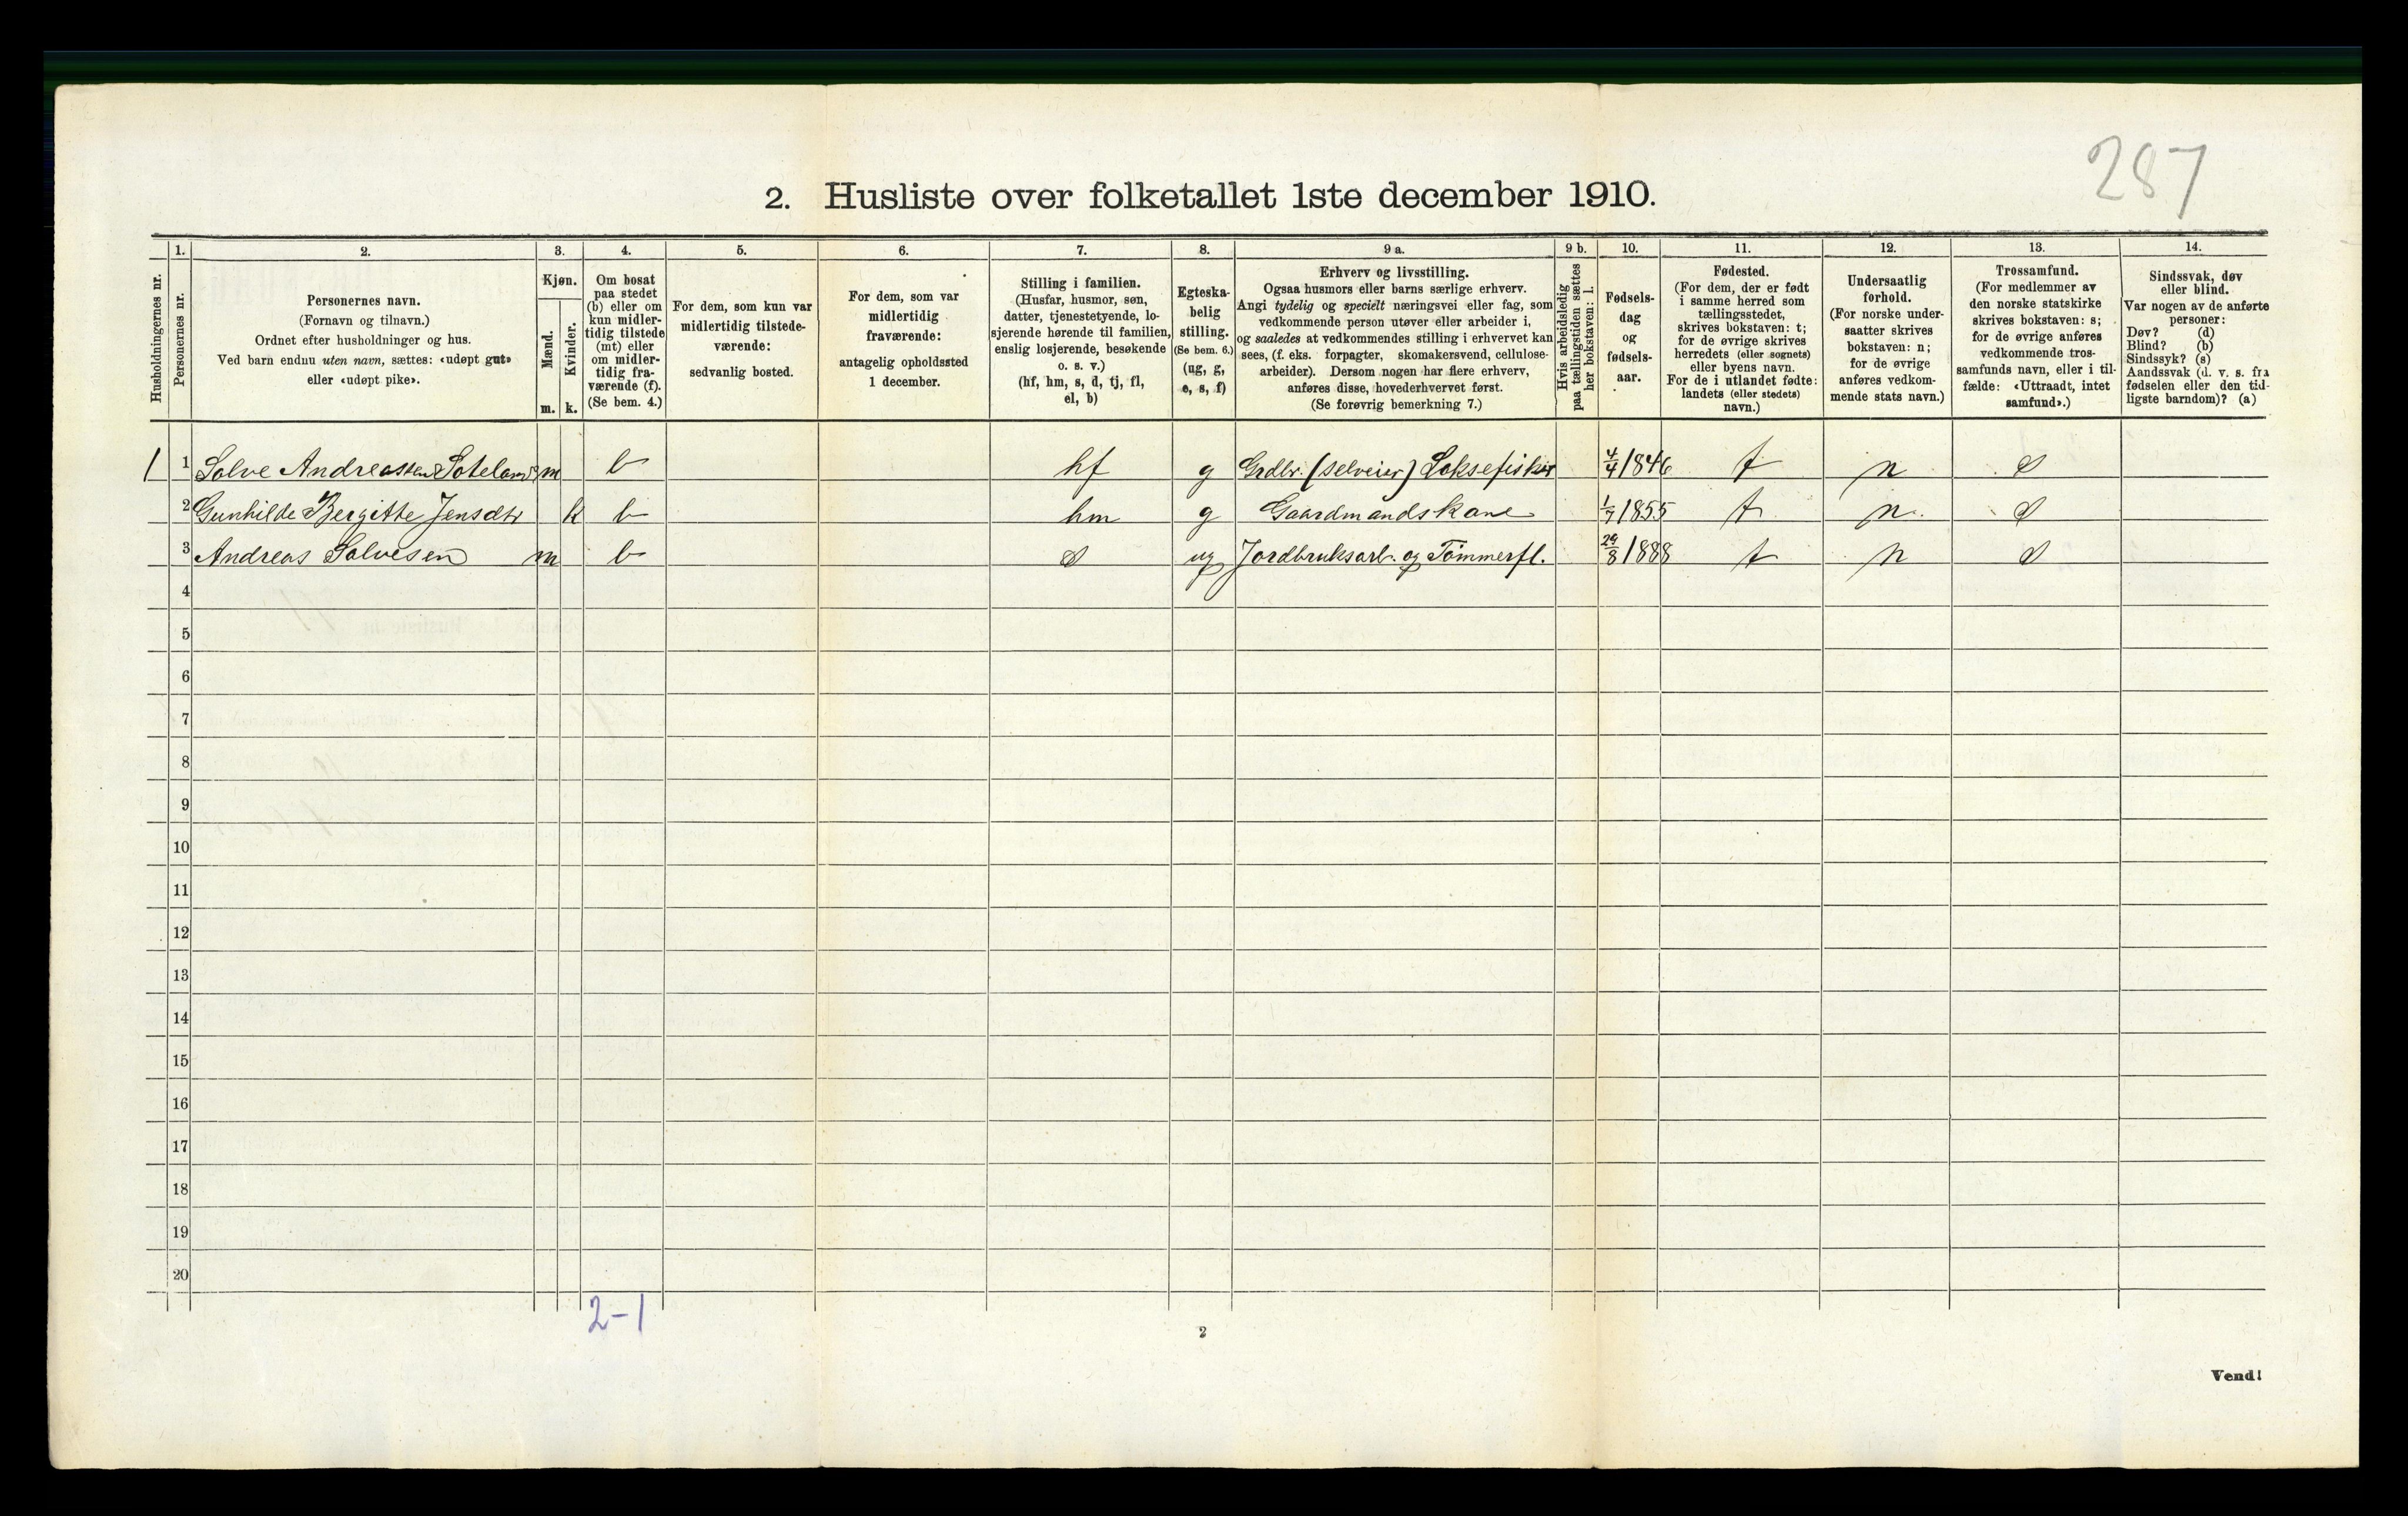 287
2. Husliste over folketallet 1ste december 1910.
1. 2. 3. 4. 5. 6. 7. 8. 9 a. 9 b. 10. 11. 12. 13. 14.
Husholdningernes nr.
Personernes nr.
Personernes navn.
(Fornavn og tilnavn.)
Ordnet efter husholdninger og hus.
Ved barn endnu uten navn, sættes: «udøpt gut»
eller «udøpt pike».
Kjøn.
Mænd.
m.
Kvinder.
k.
Om bosat
paa stedet
(b) eller om
kun midler-
tidig tilstede
(mt) eller
om midler-
tidig fra-
værende (f).
(Se bem. 4.)
For dem, som kun var
midlertidig tilstede-
værende:
sedvanlig bosted.
For dem, som var
midlertidig
fraværende:
antagelig opholdssted
1 december.
Stilling i familien.
(Husfar, husmor, søn,
datter, tjenestetyende, lo-
sjerende hørende til familien,
enslig losjerende, besøkende
o. s. v.)
(hf, hm, s, d, tj, fl,
el, b)
Egteska-
belig
stilling.
(Se bem. 6.)
(ug, g,
e, s, f)
Erhverv og livsstilling.
Ogsaa husmors eller barns særlige erhverv.
Angi tydelig og specielt næringsvei eller fag, som
vedkommende person utøver eller arbeider i,
og saaledes at vedkommendes stilling i erhvervet kan
sees, (f. eks. forpagter, skomakersvend, cellulose-
arbeider). Dersom nogen har flere erhverv,
anføres disse, hovederhvervet først.
(Se forøvrig bemerkning 7.)
Hvis arbeidsledig
paa tællingstiden sættes
her bokstaven: l.
Fødsels-
dag
og
fødsels-
aar.
Fødested.
(For dem, der er født
i samme herred som
tællingsstedet,
skrives bokstaven: t;
for de øvrige skrives
herredets (eller sognets)
eller byens navn.
For de i utlandet fødte:
landets (eller stedets)
navn.)
Undersaatlig
forhold.
(For norske under-
saatter skrives
bokstaven: n;
for de øvrige
anføres vedkom-
mende stats navn.)
Trossamfund.
(For medlemmer av
den norske statskirke
skrives bokstaven: s;
for de øvrige anføres
vedkommende tros-
samfunds navn, eller i til-
fælde: «Uttraadt, intet
samfund».)
Sindssvak, døv
eller blind.
Var nogen av de anførte
personer:
Døv? (d)
Blind? (b)
Sindssyk? (s)
Aandssvak (d. v. s. fra
fødselen eller den tid-
ligste barndom)? (a)
1 1 Solve Andreassen Soteland m b hf g Grdbr. (selveier) Laksefisker 4/4 1846 t n s
2 Gunhilde Bergitte Jensdtr k b hm g Gaardmandskone 1/7 1855 t n. s
3 Andreas Solvesen m b s ug Jordbruksarb. og Tømmerfl. 29/8 1888 t n s
4
5
6
7
8
9
10
11
12
13
14
15
16
17
18
19
20
2-1
2
Vend!